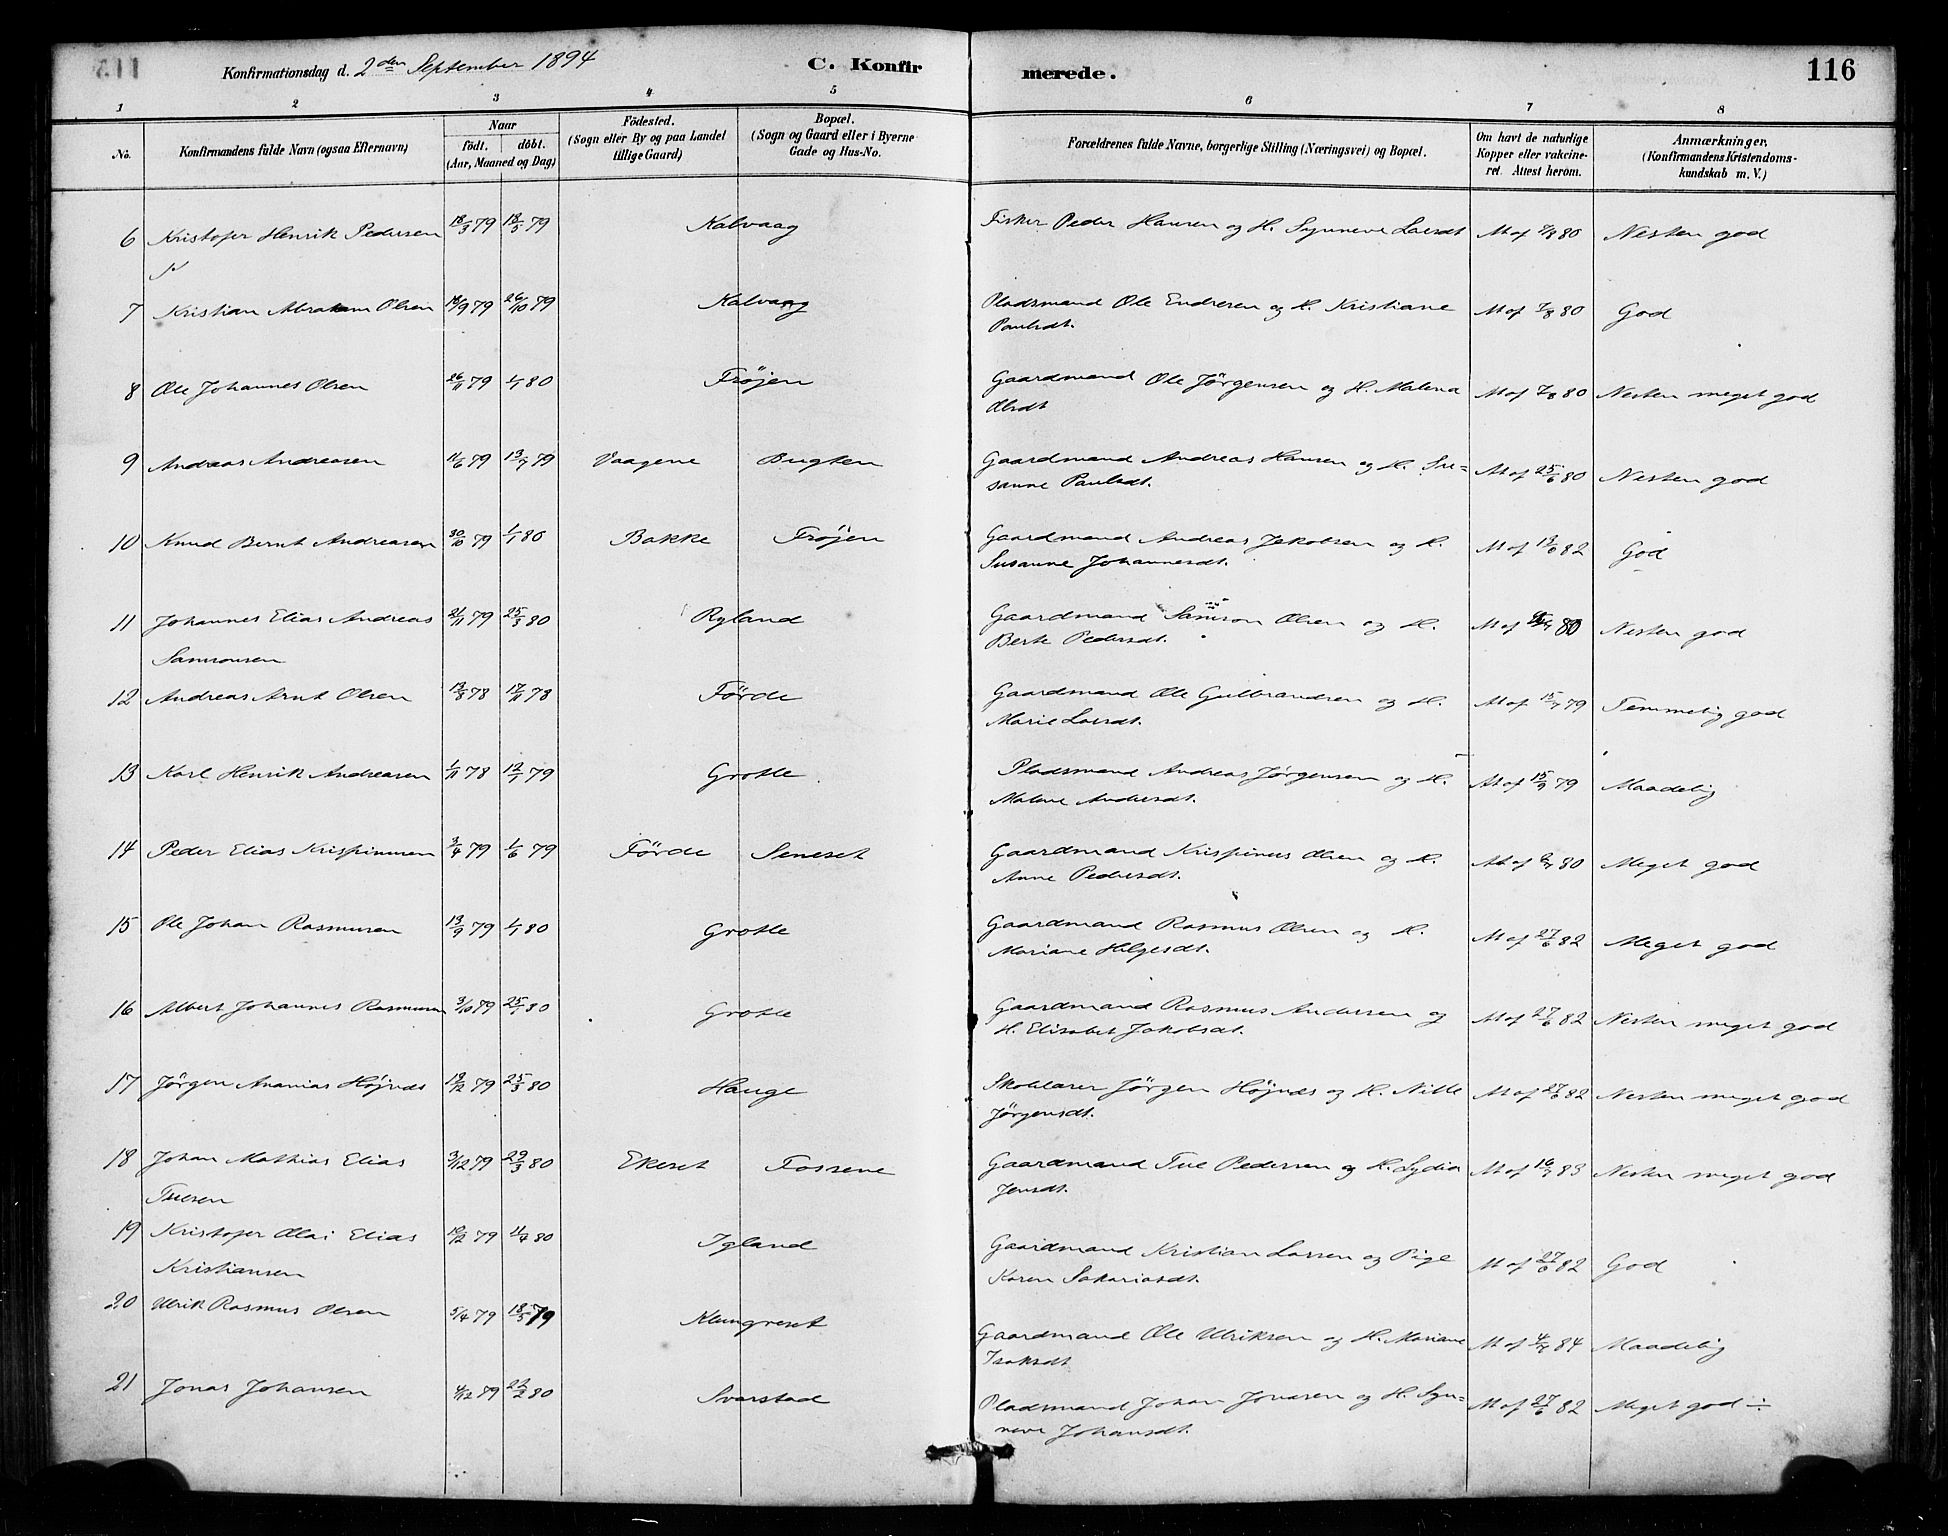 Konfirmationsdag d. 2den September 1894 C. Konfirmerede. 116
1 2 3 4 5 6 7 8
No. Konfirmandens fulde Navn (ogsaa Efternavn) Naar født. døbt. (Aar, Maaned og Dag) Fødested. (Sogn eller By og paa Landet tillige Gaard) Bopæl. (Sogn og Gaard eller i Byerne Gade og Hus-No. Forældrenes fulde Navne, borgerlige Stilling (Næringsvei) og Bopæl. Om havt de naturlige Kopper eller vakcineret. Attest herom. Anmærkninger. (Konfirmandens Kristendomskundskab m. V.)
6 Kristofer Henrik Pedersen 18/3 79 18/5 79 Kalvaag Fisker Peder Hansen og H. Synneve Larsdt At af 7/8 80 Nesten god
7 Kristian Abraham Olsen 18/9 79 26/10 79 Kalvaag Pladsmand Ole Endresen og H. Kristiane At af 7/8 80 God
Paulsdt.
8 Ole Johannes Olsen 26/11 79 1/1 80 Frøjen Gaardmand Ole Jørgensen og H. Malena At af 7/8 80 Nesten meget god
Olsdt
9 Andreas Andreasen 11/6 79 13/7 79 Vaagene Bugten Gaardmand Andreas Hansen og H. Su= At af 25/6 80 Nesten god
sanne Paulsdt.
10 Knud Bernt Andreasen 30/10 79 1/1 80 Bakke Frøjen Gaardmand Andreas Jakobsen og H. At af 13/6 82 God
Susanne Johannesdt.
11 Johannes Elias Andreas 21/11 79 25/3 80 Ryland Gaardmand Samson Olsen og H. At af 80 Nesten god
Samsonsen Berte Pedersdt.
12 Andreas Arnt Olsen 13/8 78 17/11 78 Førde Gaardmand Ole Gulbrandsen og H. At af 15/7 79 Temmelig god
Marie Larsdt.
13 Karl Henrik Andreasen 1/11 78 12/1 79 Grotle Pladsmand Andreas Jørgensen og H. At af 15/9 79 Maadelig
Malene Andersdt.
14 Peder Elias Krispinusen 3/4 79 1/6 79 Førde Seneset Gaardmand Krispinus Olsen og H. At af 80 Meget god
Anne Pedersdt.
15 Ole Johan Rasmusen 13/9 79 1/1 80 Grotle Gaardmand Rasmus Olsen og H. At af 27/6 82 Meget god
Mariane Helgesdt.
16 Albert Johannes Rasmusen 3/10 79 25/1 80 Grotle Gaardmand Rasmus Andersen og At af 27/6 82 Nesten meget god
H. Elisabet Jakobsdt.
17 Jørgen Ananias Højnæs 19/12 79 25/3 80 Hauge Skolelærer Jørgen Højnæs og H. Nille At af 27/6 82 Nesten meget god
Jørgensdt.
18 Johan Mathias Elias 3/12 79 29/3 80 Ekeset Fossene Gaardmand Tue Pedersen og H. Lydia At af 16/7 83 Nesten meget god
Tuesen Jensdt.
19 Kristofer Olai Elias 10/12 79 11/4 80 Igland Gaardmand Kristian Larsen og Pige At af 27/6 82 God
Kristiansen Karen Sakariasdt.
20 Ulrik Rasmus Olsen 5/4 79 18/5 79 Klungreset Gaardmand Ole Ulriksen og H. Mariane At af 84 Maadelig
Isaksdt
21 Jonas Johansen 4/12 79 22/2 80 Svarstad Pladsmand Johan Jonasen og H. Syn= At af 27/6 82 Meget god ÷
neve Johansdt.